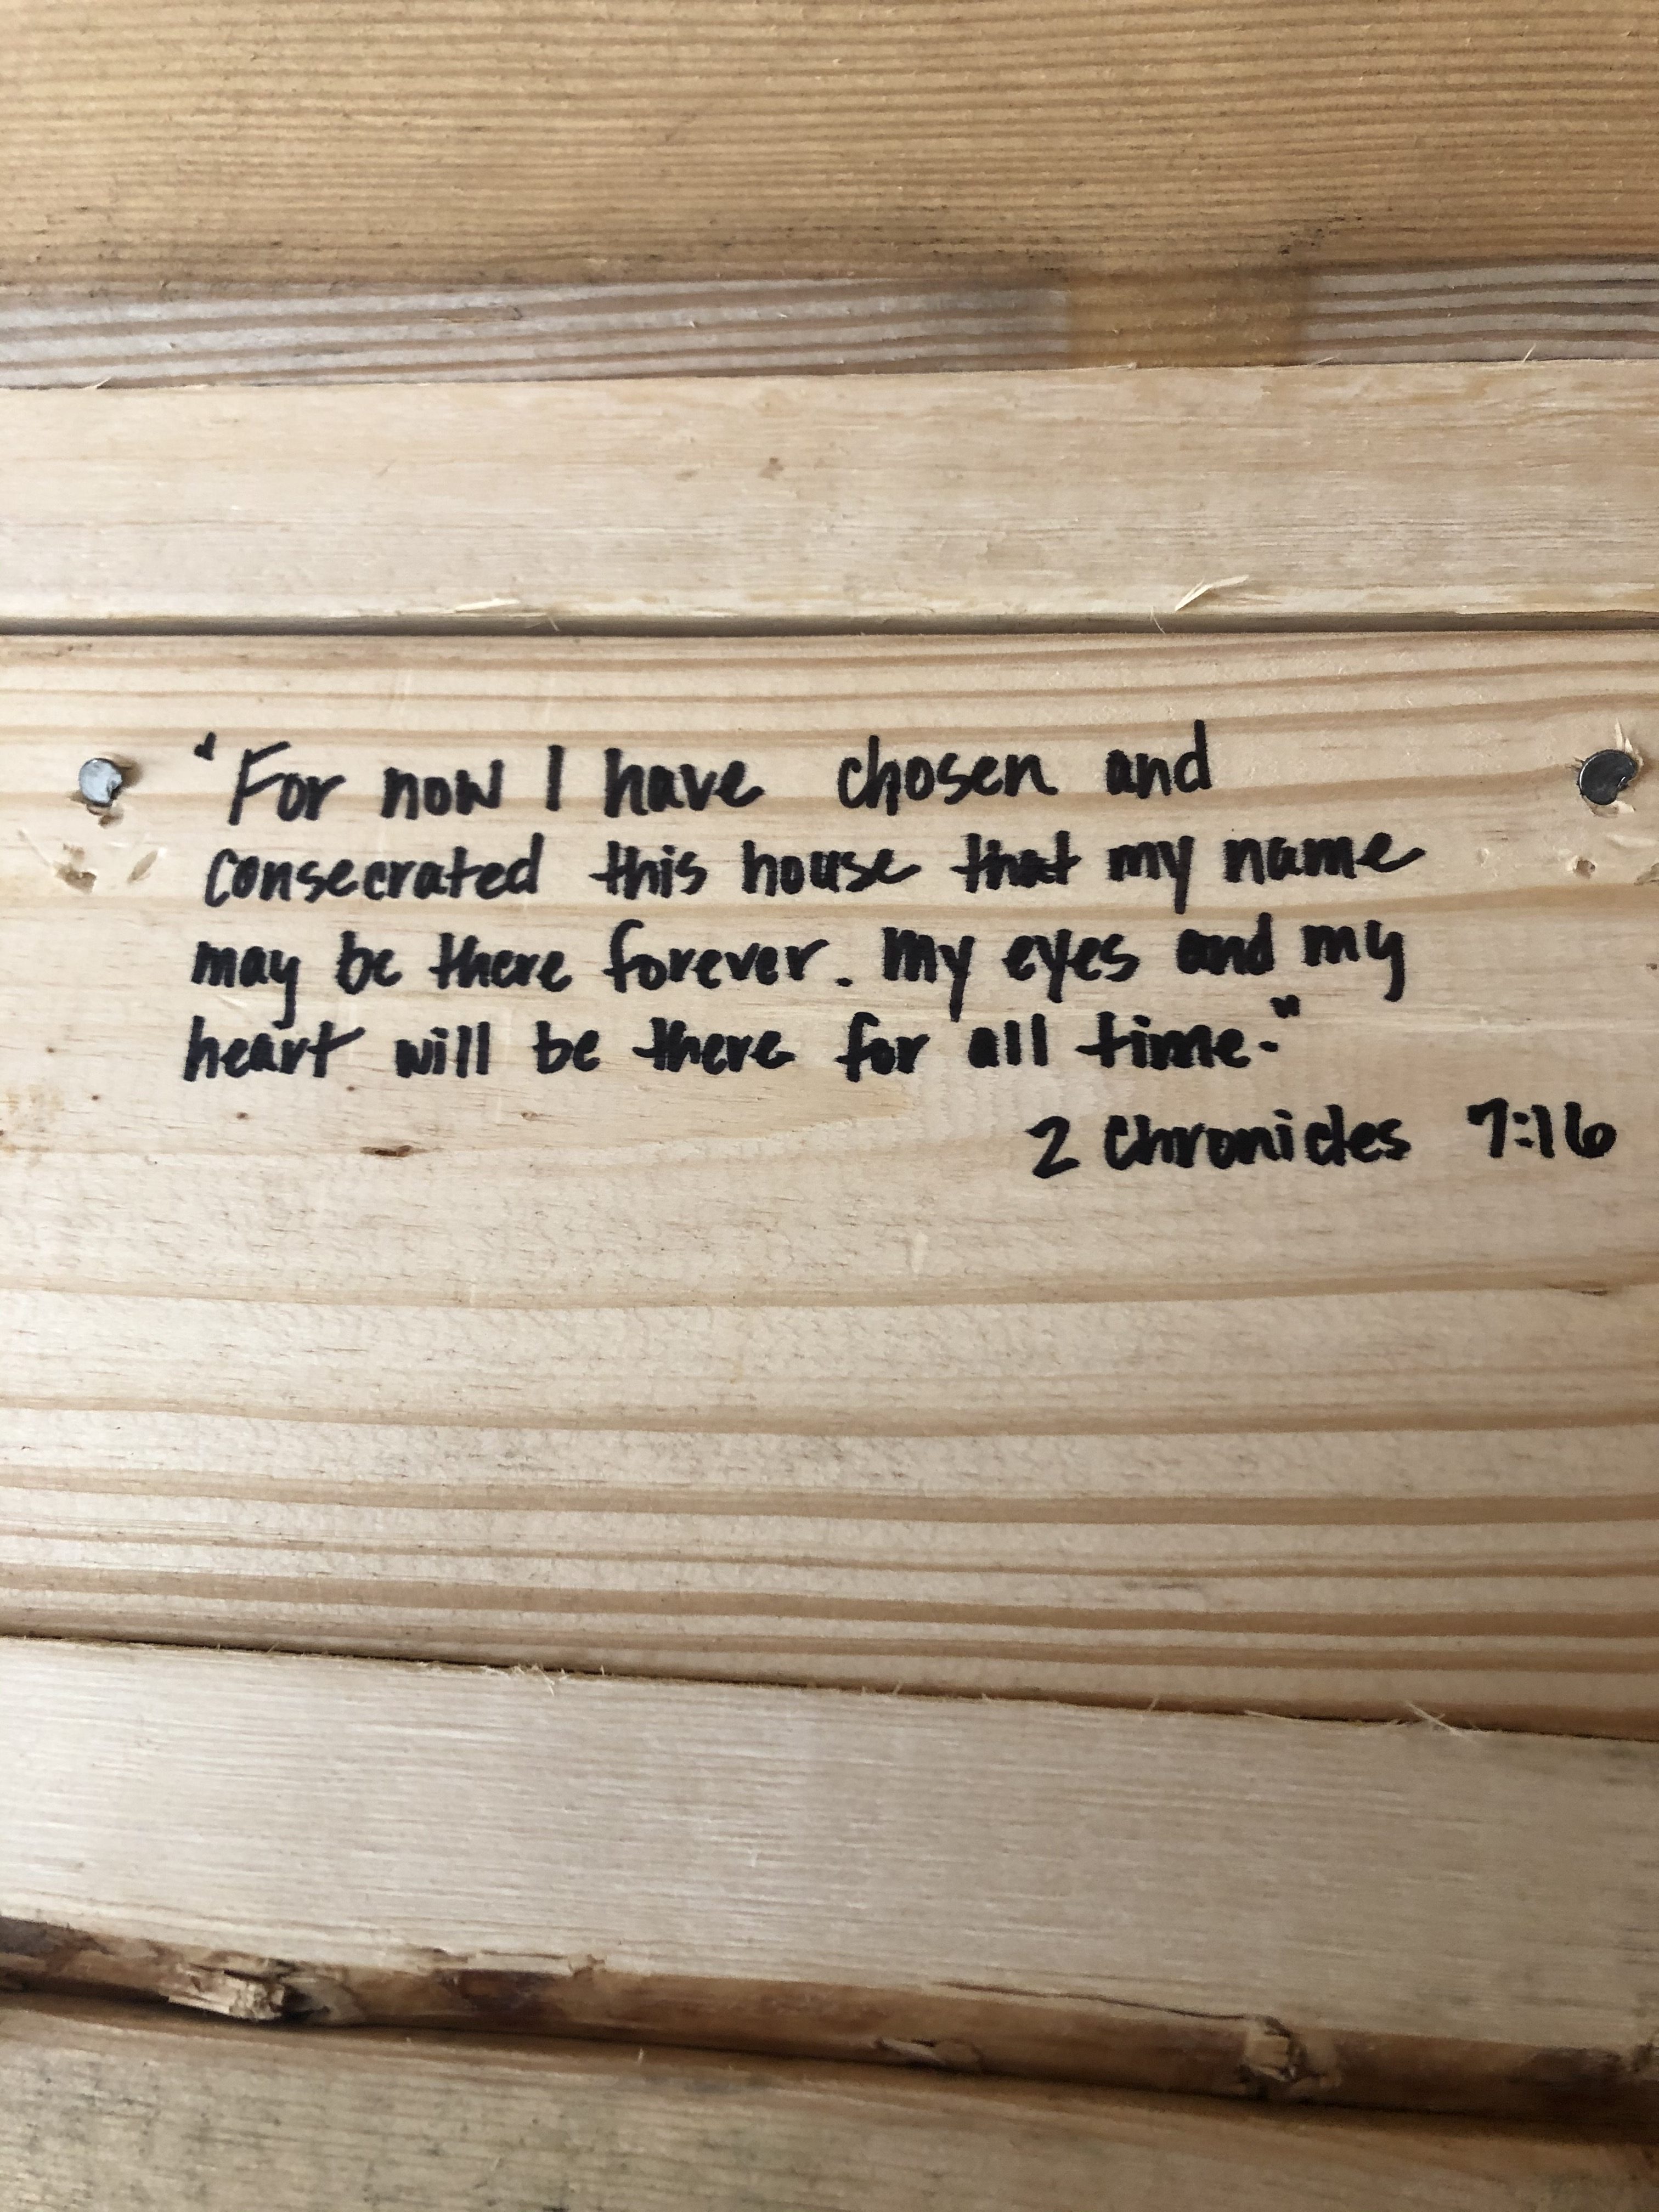 "For now I have chosen and
consecrated this house that my name
may be there forever. My eyes and my
heart will be there for all time."
2 Chronicles 7:16